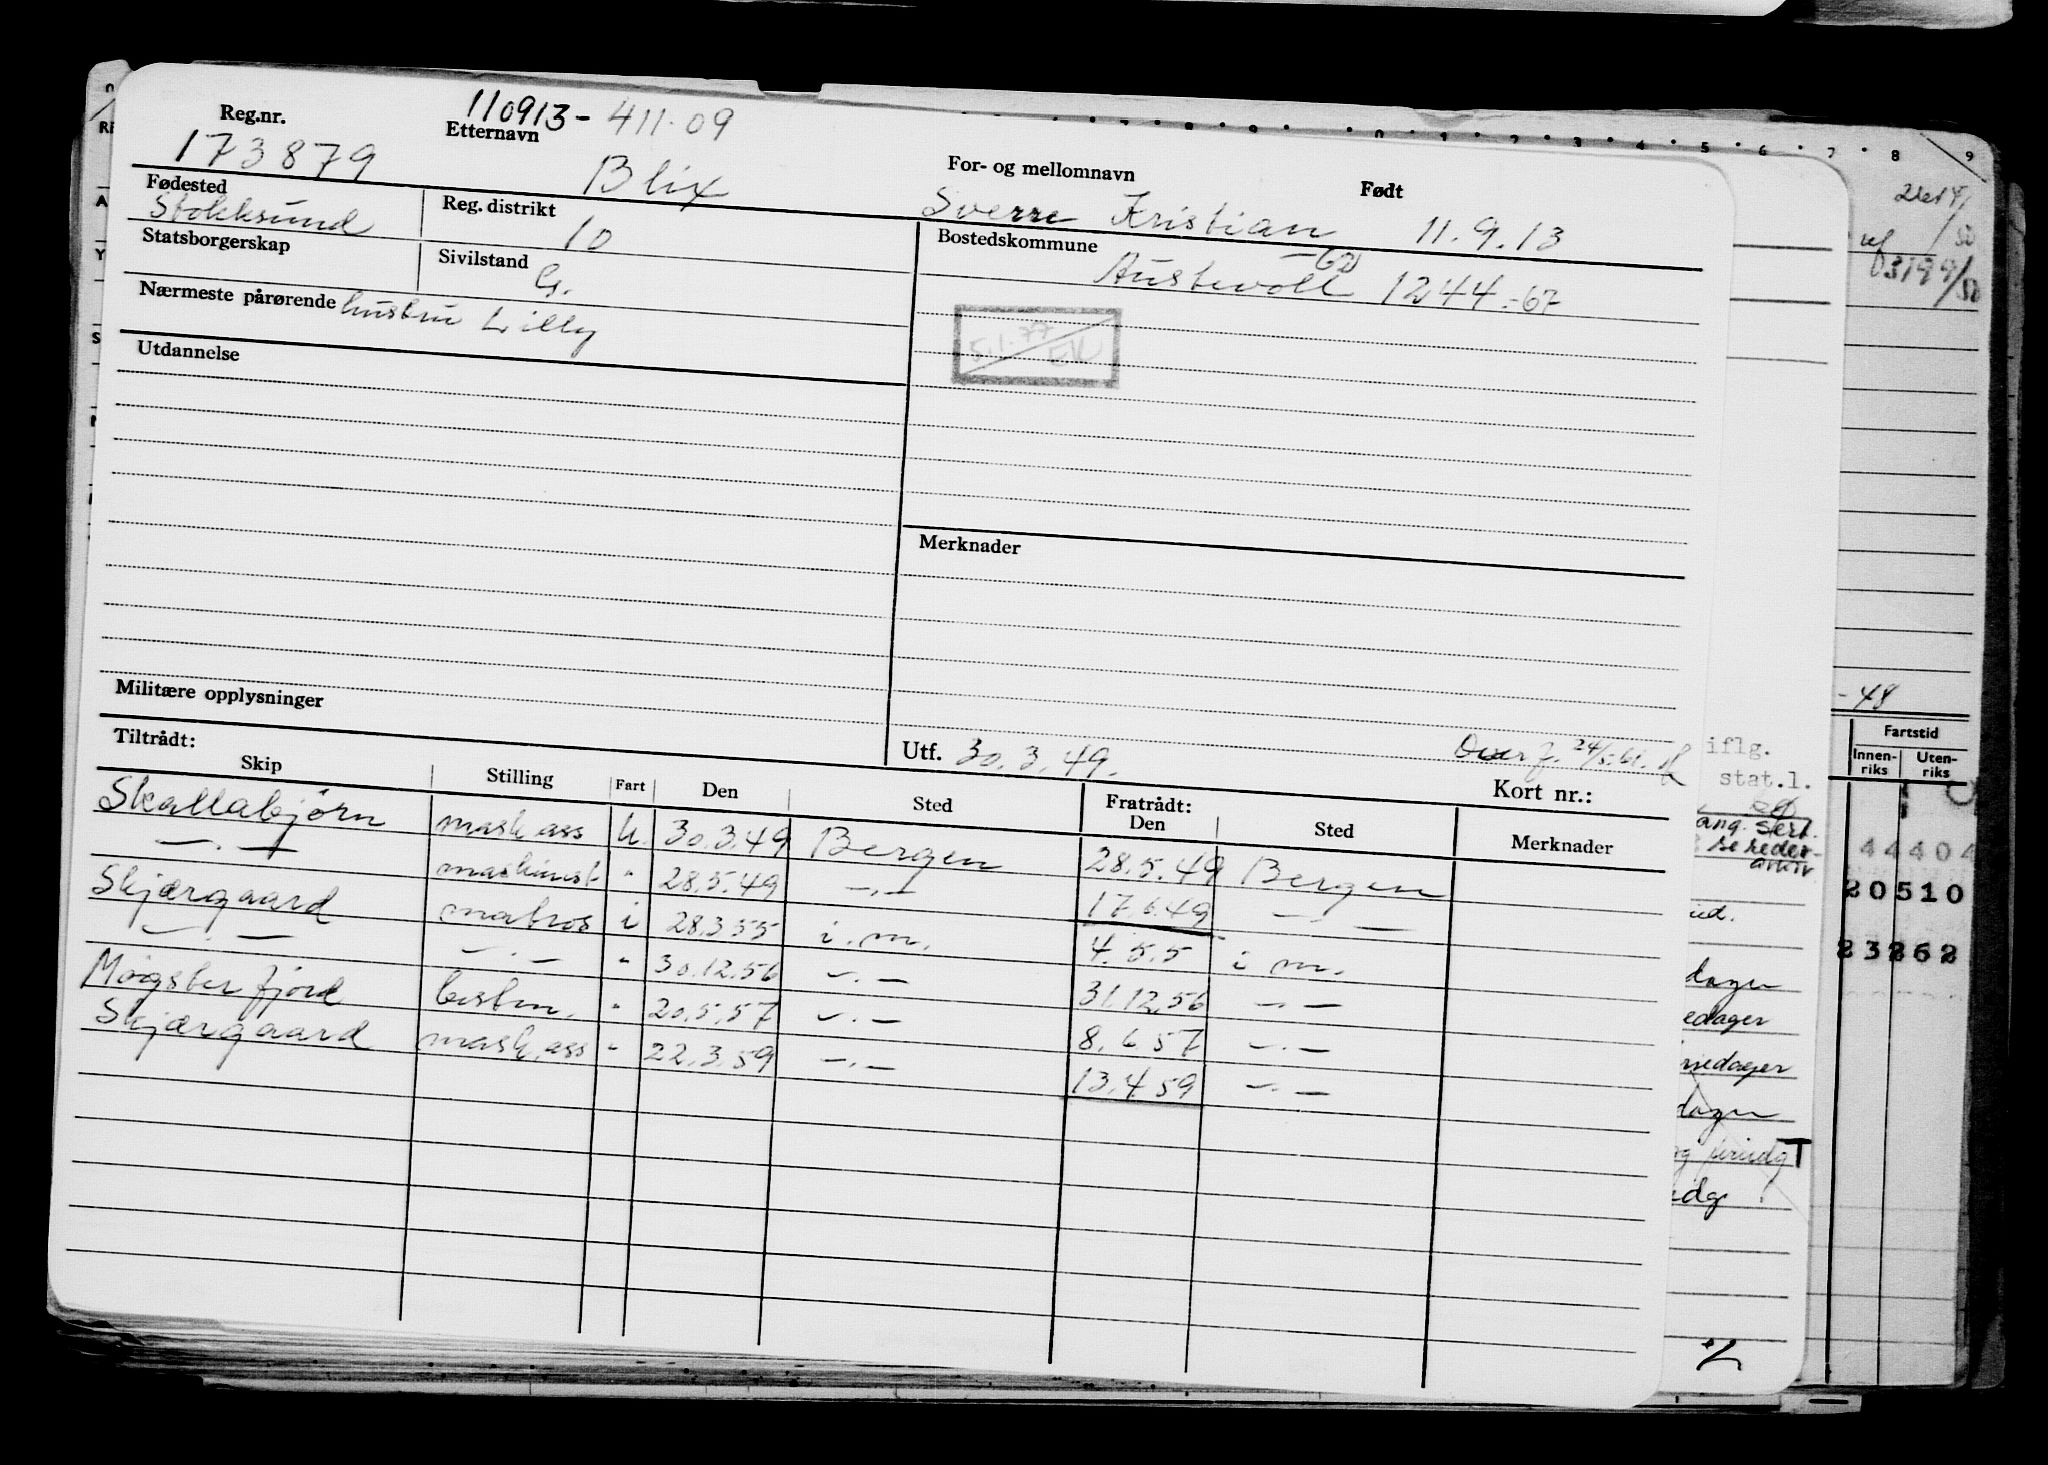 110913-411.09
Reg.nr. Etternavn For- og mellomnavn Født
173879 Blix Sverre Kristian 11.9.13
Fødested Reg. distrikt Bostedskommune
Stokksund 10 Austevoll -62 1244 -67
Statsborgerskap Sivilstand
G.
Nærmeste pårørende hustru Lilly
5.1.77 EK
Utdannelse
Merknader
Militære opplysninger
Utf. 30.3.49. Overf. 24/5-61.
Tiltrådt: Fratrådt: Kort nr.:
Skip Stilling Fart Den Sted Den Sted Merknader
Skallabjörn mask ass U. 30.3.49 Bergen 28.5.49 Bergen
—.— maskinist " 28.5.49 —.— 17.6.49 —.—
Skjærgaard matros i 28.3.55 i.m. 4.5.5 i m.
—.— —.— " 30.12.56 —.— 31.12.56 —.—
Møgsterfjord bestm. " 20.5.57 —.— 8.6.57 —.—
Skjærgaard mask.ass " 22.3.59 —.— 13.4.59 —.—
7 8 9
-48
Fartstid
Innen-riks Uten-riks
iflg.
stat.l.
44404
20510
23262
dager
edager
riedager
dager
T
edg